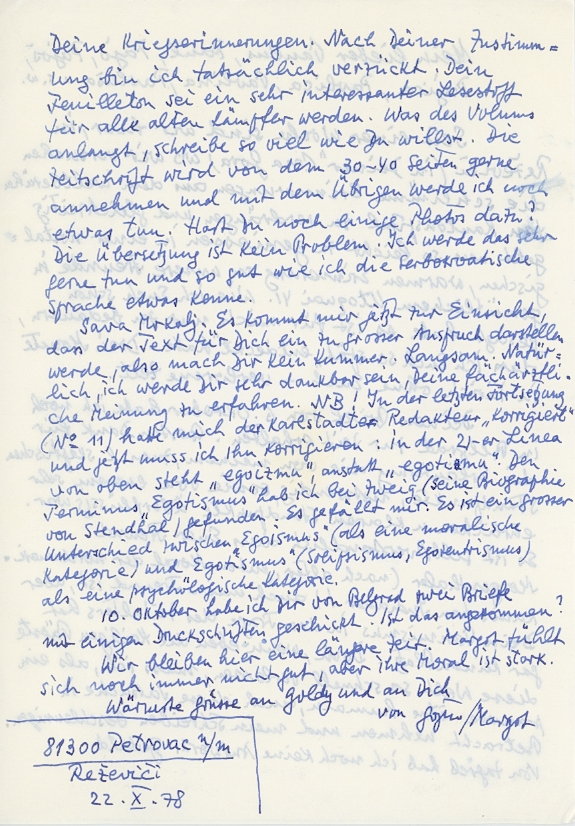 Deine Kriegserinnerungen. Nach Deiner Zustimm=
ung bin ich tatsächlich verzückt. Dein
Feuilleton sei ein sehr interessanter Lesestoff
für alle alten Kämpfer werden. Was des Volums
anlangt, schreibe so viel wie Du willst. Die
Zeitschrift wird von dem 30-40 Seiten gerne
annehmen und mit dem Übrigen werde ich noch
etwas tun. Hast Du noch einige Photos dazu?
Die Übersetzung ist kein Problem. Ich werde das sehr
gerne tun und so gut wie ich die serbokroatische
Sprache etwas kenne.
Sava Mrkalj. Es kommt mir jetzt zur Einsicht,
dass der Text für Dich ein zu grosser Anspruch darstellen
werde, also mach Dir kein Kummer. Langsam. Natür-
lich, ich werde Dir sehr dankbar sein, Deine fachärztli-
che Meinung zu erfahren. NB! In der letzten Fortsetzung
(No 11) hatte mich der Karlstadter Redakteur „Korrigiert"
und jetzt muss ich Ihn korrigieren. In der 21-er Linea
von oben steht „egoizmu", anstatt „egotizmu". Den
Terminus „Egotismus" hab ich bei Zweig (seine Biographie
von Stendhal) gefunden. Es gefällt mir. Es ist ein grosser
Unterschied zwischen „Egoismus" (als eine moralische
Kategorie) und „Egotismus" (Solipsismus, Egozentrismus)
als eine psychologische Kategorie.
10. Oktober habe ich Dir von Belgrad zwei Briefe
mit einigen Druckschriften geschickt. Ist das angekommen?
Wir bleiben hier eine längere Zeit. Margot fühlt
sich noch immer nicht gut, aber ihre Moral ist stark.
Wärmste Grüsse an Goldy und an Dich
von Gojko/Margot
81300 Petrovac n/m
Reževići
22. X. 78